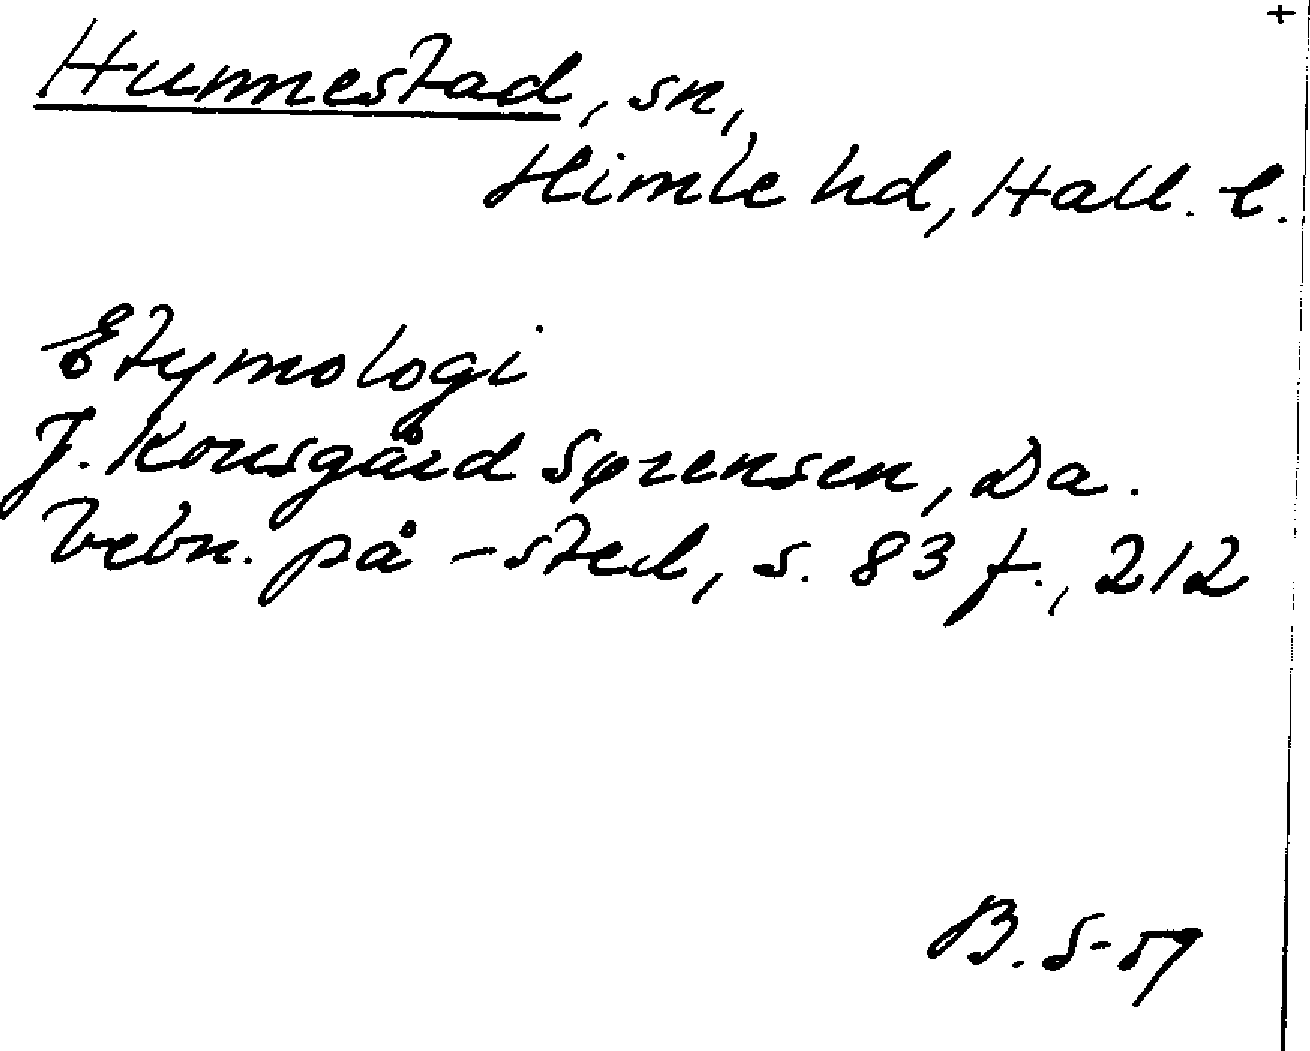 +
Hunnestad, sn,
Himle hd, Hall. l.
Etymologi
J. Kousgård Sørensen, Da.
bebn. på -sted, s. 83 f., 212
B. S-